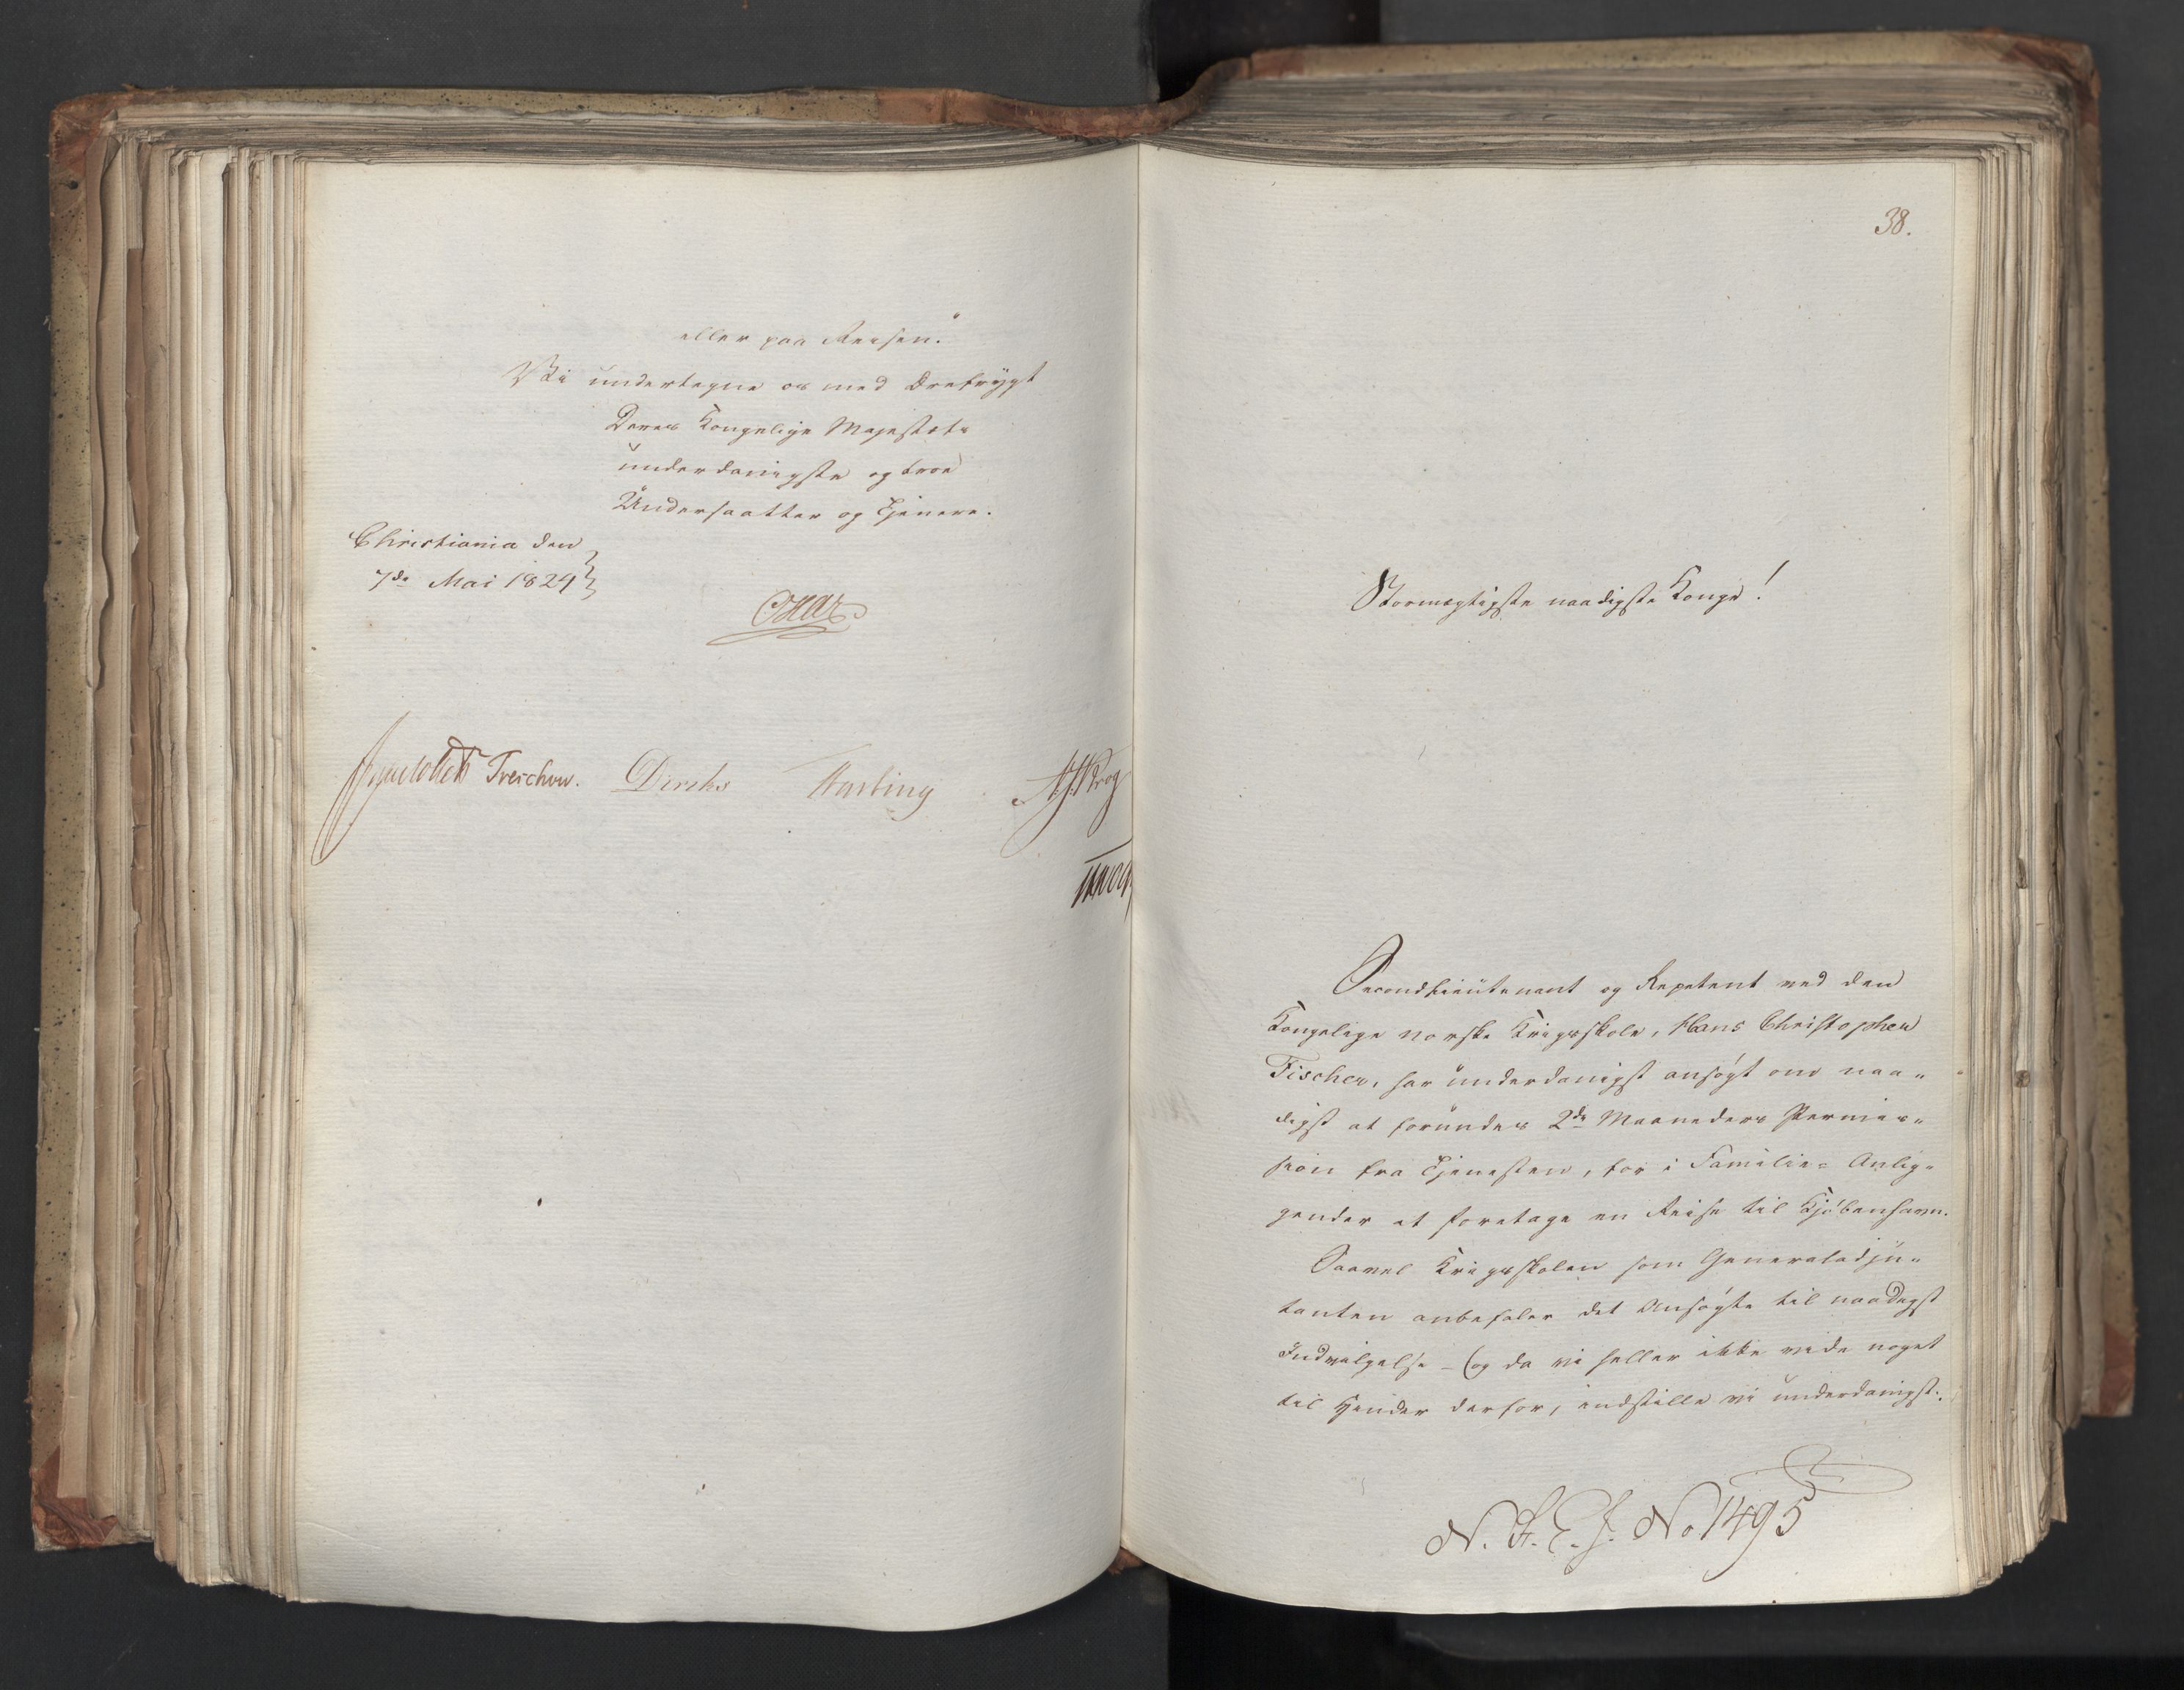 eller paa Reisen."
Vi undertegne os med Ærefrygt
Deres Kongelige Majestæts
underdanigste og troe
Undersaatter og Tjenere.
Christiania den
7de Mai 1824
Treschow. Diriks Fasting
38.
Stormægtigste naadigste Konge!
Secondlieutenant og Repetent ved den
Kongelige norske Krigsskole, Hans Christopher
Fischer, har underdanigst ansøgt om naa-
digst at forundes 2de Maaneders Permis-
sion fra Tjenesten, for i Familie-Anlig-
gender at foretage en Reise til Kjøbenhavn.
Saavel Krigsskolen som Generaladju-
tanten anbefaler det Ansøgte til naadigst
Indvilgelse – (og da vi heller ikke vide noget
til Hinder derfor, indstille vi underdanigst:
No 1495